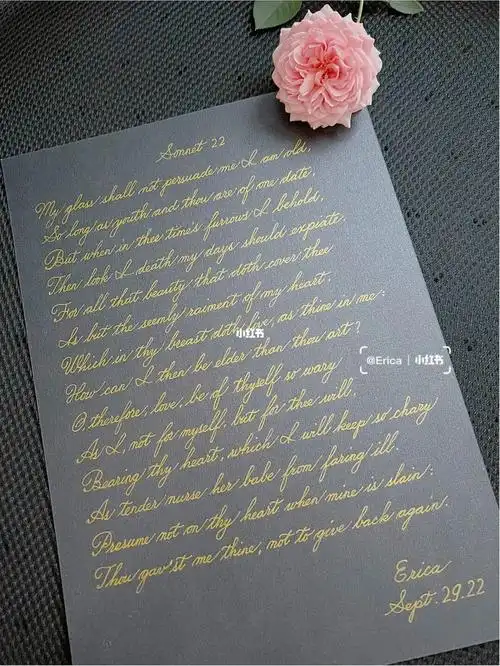 Sonnet 22
My glass shall not persuade me I am old,
So long as youth and thou are of one date,
But when in thee time's furrows I behold,
Then look I death my days should expiate.
For all that beauty that doth cover thee
Is but the seemly raiment of my heart,
Which in thy breast doth live, as thine in me:
How can I then be elder than thou art?
O therefore, love, be of thyself so wary
As I, not for myself, but for thee will,
Bearing thy heart, which I will keep so chary
As tender nurse her babe from faring ill.
Presume not on thy heart when mine is slain:
Thou gav'st me thine, not to give back again.
Erica
Sept. 29.22
小红书
@Erica | 小红书